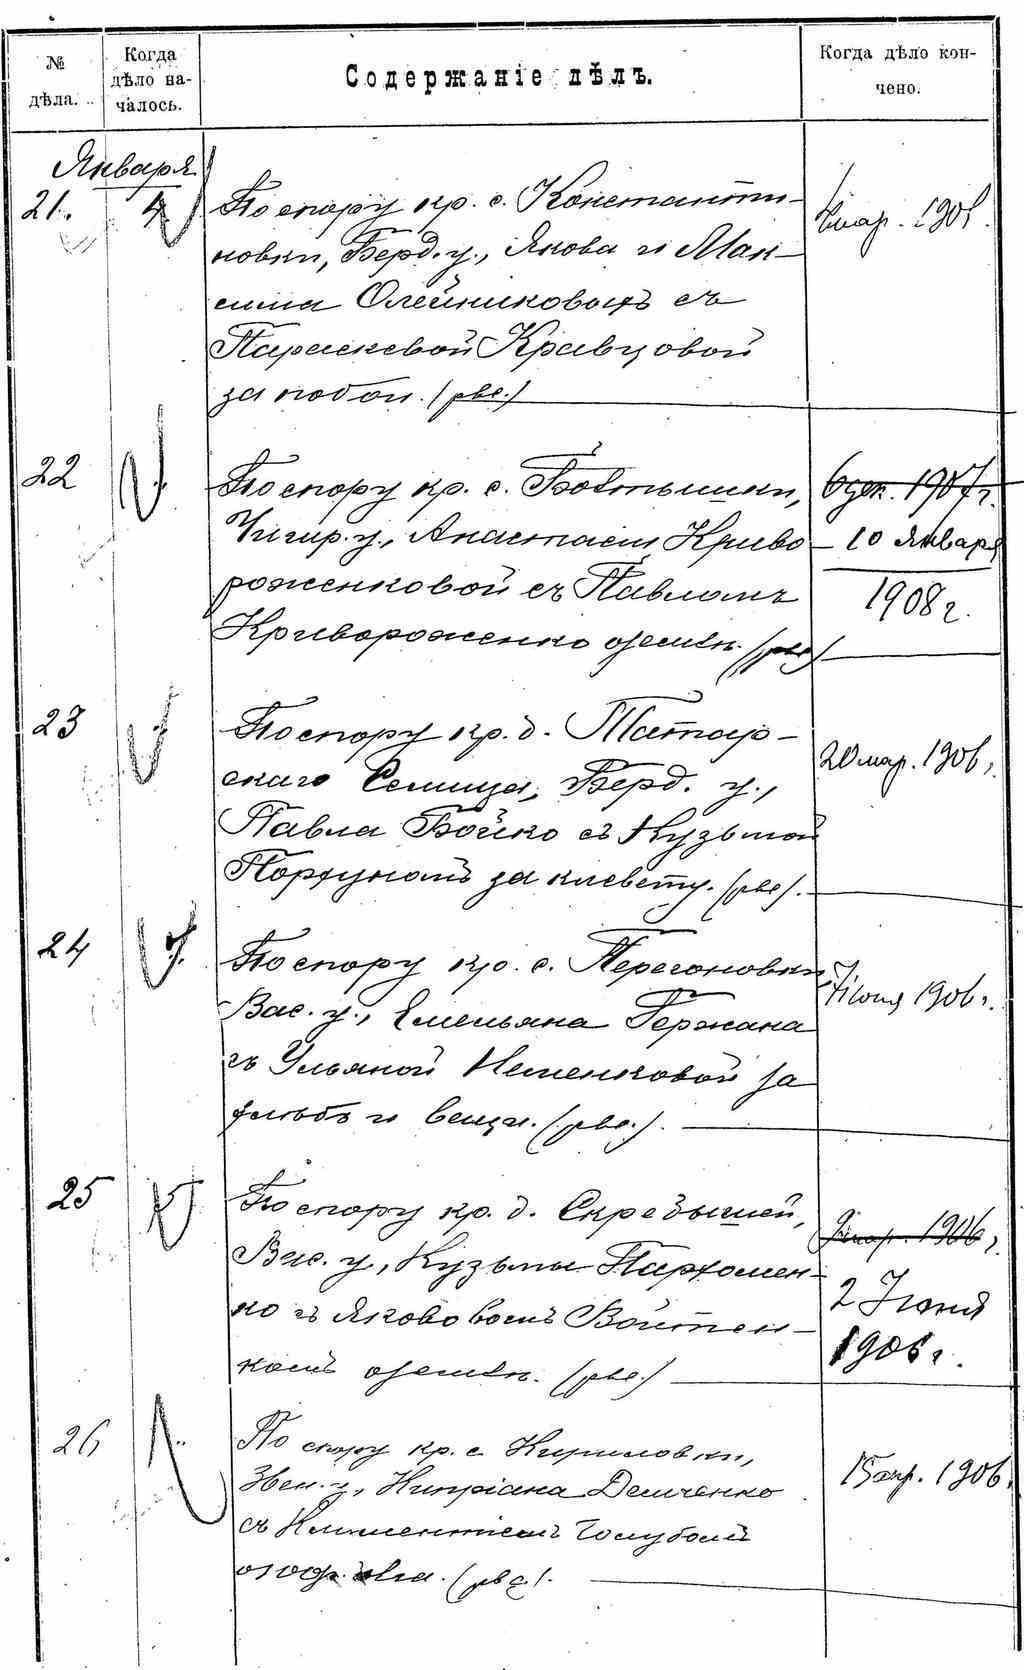 № дѣла.
Когда дѣло на-
чалось.
Содержаніе дѣлъ.
Когда дѣло кон-
чено.
Января
21. 4 По спору кр. с. Константи-
новки, Берд. у., Якова и Мак-
сима Олейниковыхъ съ
Параскевой Кравцовой
за побои. (рѣе.)
мар. 1906.
22 По спору кр. с. Болтышки,
Чигир. у., Анастасіи Криво
роженковой съ Павломъ
Кривороженко о землѣ.
6 дек. 1907 г.
10 Января
1908 г.
23 По спору кр. д. Татар-
скаго Селища, Берд. у.,
Павла Бойко съ Кузьмой
Порхуномъ за клевету.
20 мар. 1906 г.
24 По спору кр. с. Перегоновки,
Вас. у., Емельяна Гержана
съ Ульяной Неменковой за
хлѣбъ и вещи.
7 іюня 1906 г.
25 5 По спору кр. д. Скребышей,
Вас. у., Кузьмы Пархомен-
ко съ Яковомъ Войтен-
комъ о землѣ.
мар. 1906 г.
2 Іюня
1906 г.
26 По спору кр. с. Кириловки,
Звен. у., Кипріана Демченко
съ Климентіемъ Голубомъ
15 апр. 1906.